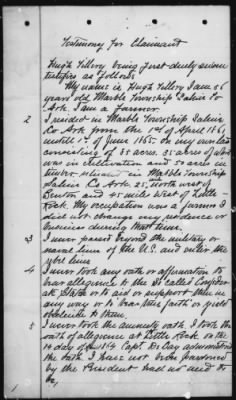 Testimony for Claimant
Hugh Tillery being first duly sworn
testifies as follows
My name is Hugh Tillery I am 56
years old Marble Township Saline Co
Ark. I am a Farmer
2 I resided in Marble Township Saline
Co Ark from the 1st of April 1861
until 1st of June 1865. on my own land
consisting of 85 acres. 35 acres of which
was in cultivation and 50 acres in
timber. situated in Marble Township
Saline Co Ark 25 north west of
Benton and 45 miles West of Little
Rock. My occupation was a farmer I
did not change my residence or
business during that time.
3 I never passed beyond the military or
naval lines of the U.S. and enter the
rebel lines
4 I never took any oath or affirmation to
bear allegiance to the so called Confeder
ate States or to aid or support them in
any way or to bear true faith or yield
obedience to them.
5 I never took the amnesty oath. I took the
oath of allegiance at Little Rock on the
14 day of 1864 Capt. administered
the oath I have not been pardoned
by the President had no need to
be,
1